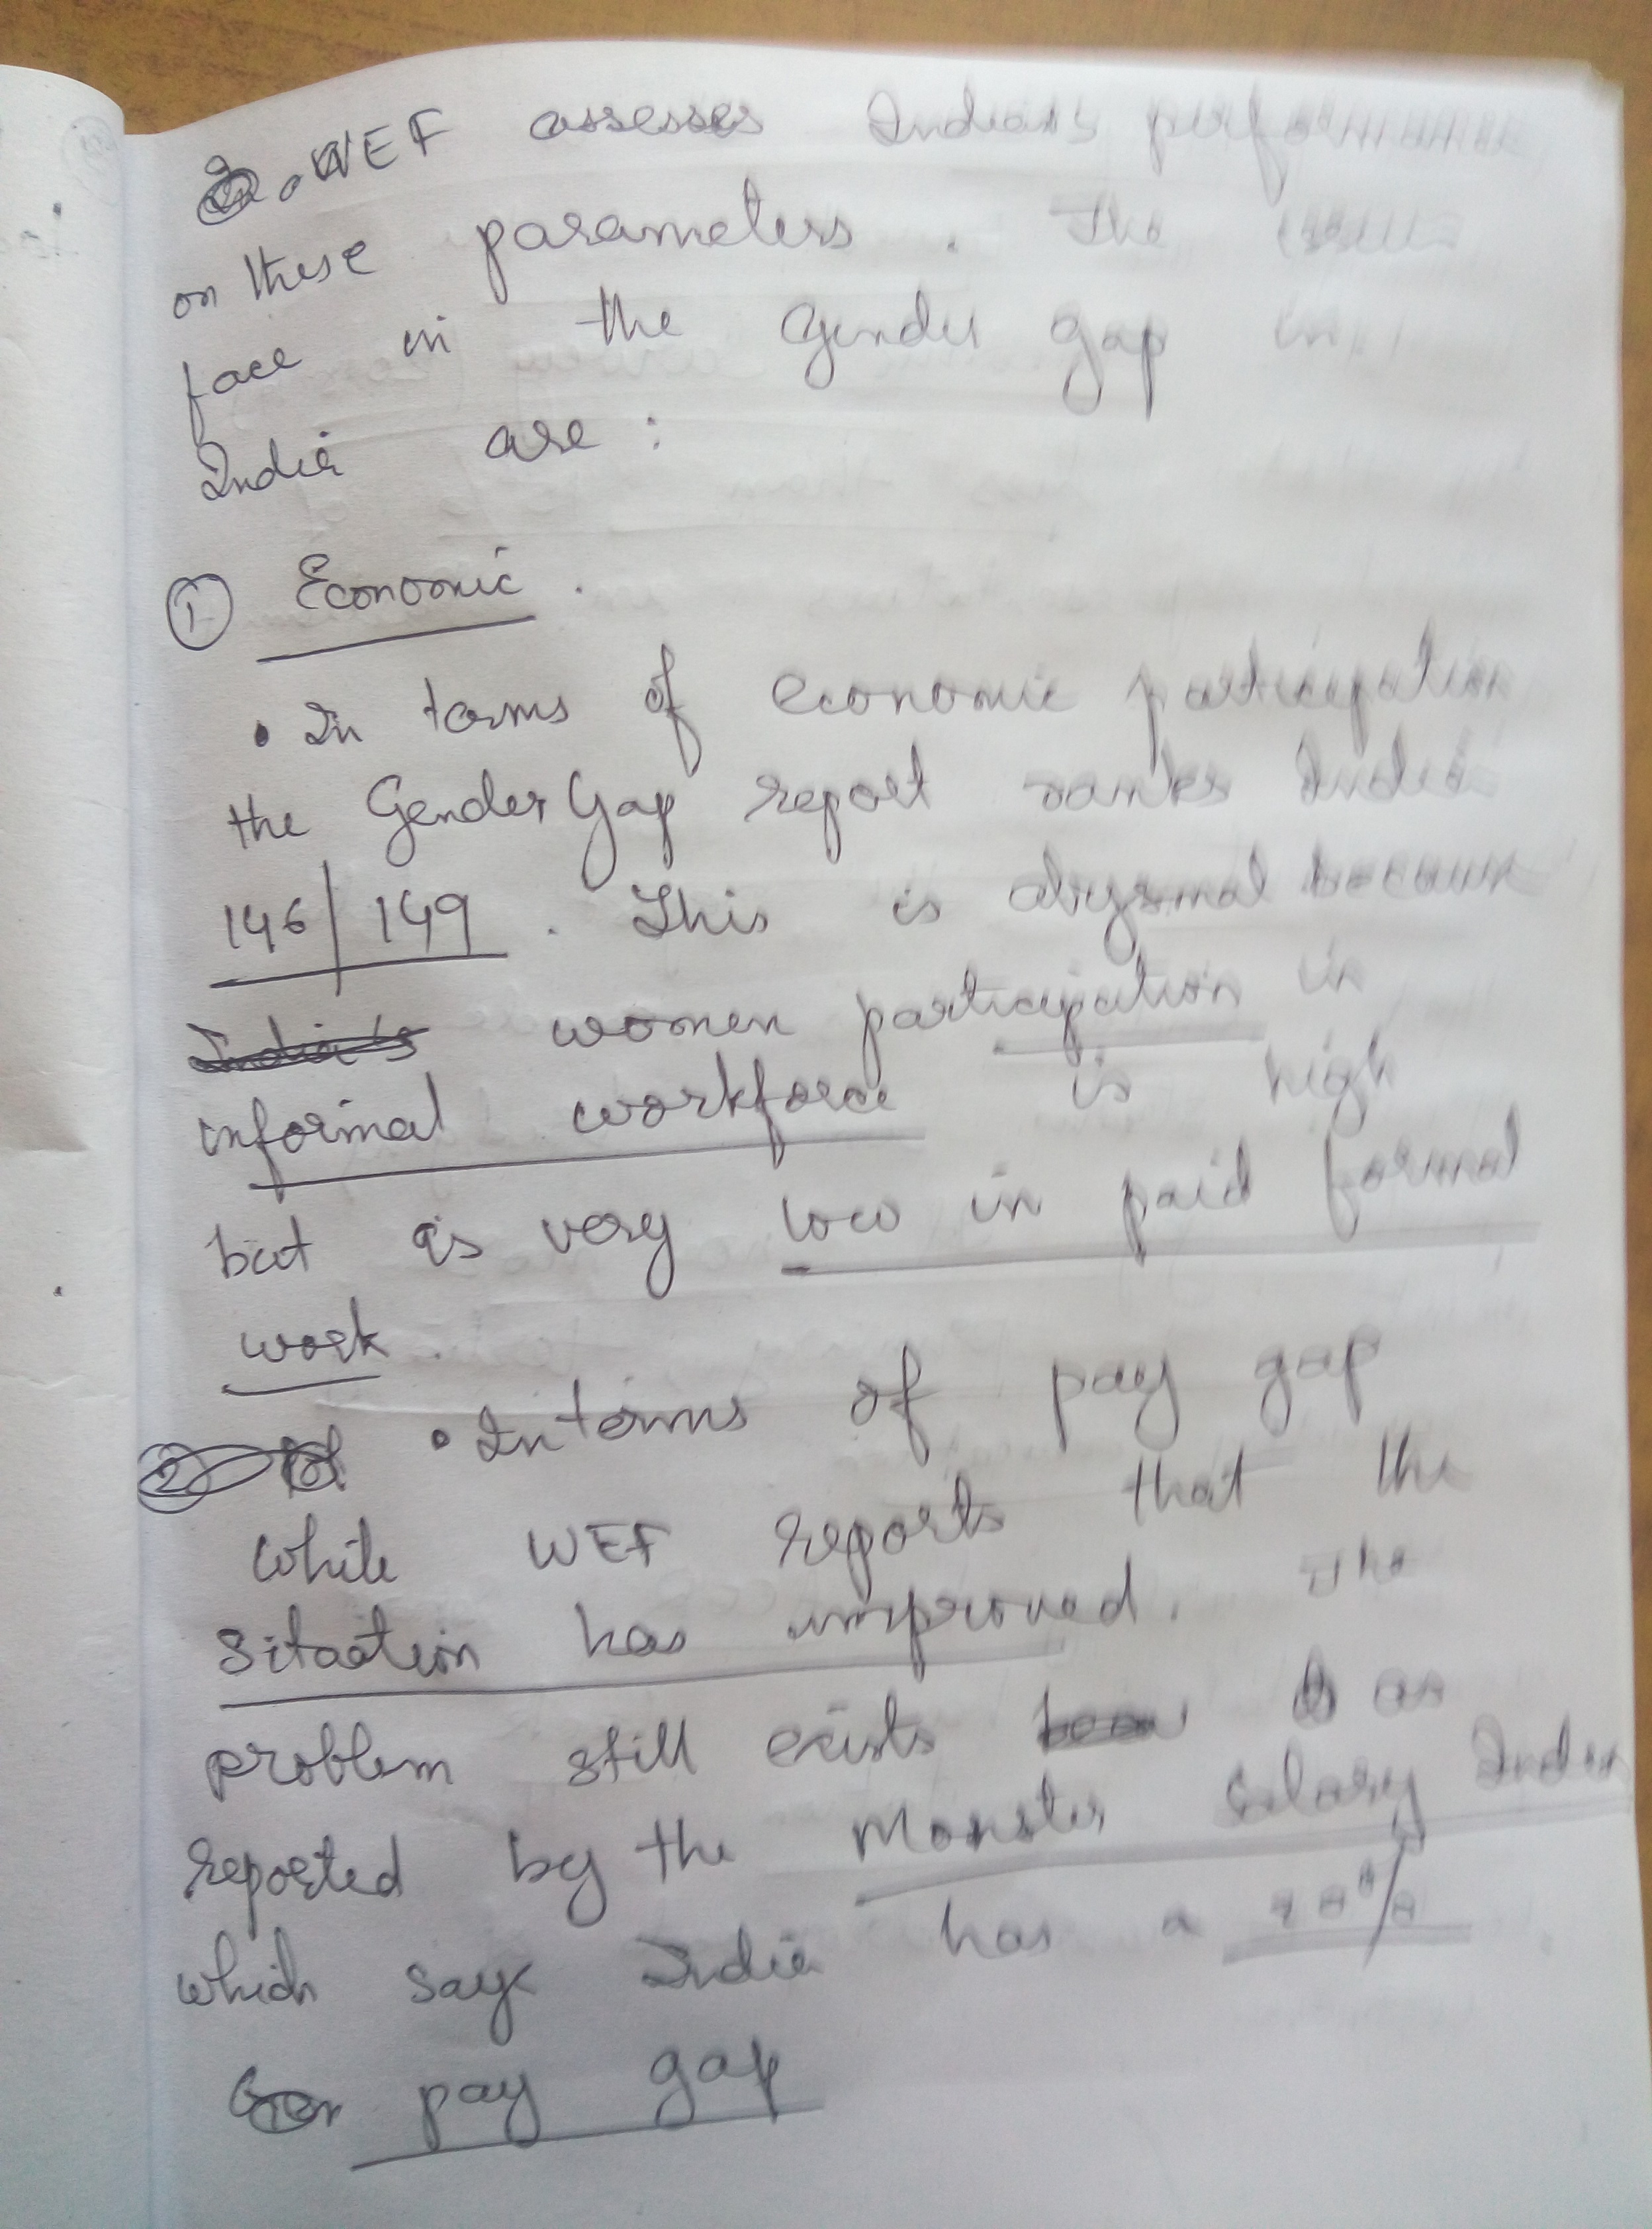 . WEF assesses India's performance
on these parameters. The issues
face in the gender gap in
India are :
① Economic .
• In terms of economic participation
the Gender Gap report ranks India
146/149 . This is abysmal because
women participation in
informal workforce is high
but is very low in paid formal
work .
• In terms of pay gap
while WEF reports that the
situation has improved. The
problem still exists as
reported by the Monster Salary Index
which says India has a
pay gap